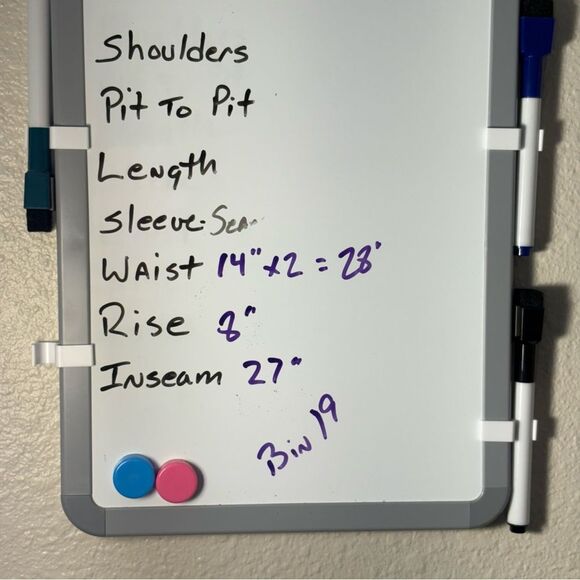 Shoulders
Pit To Pit
Length
Sleeve-Sea
Waist 14" x2 = 28"
Rise 8"
Inseam 27"
Bin 19